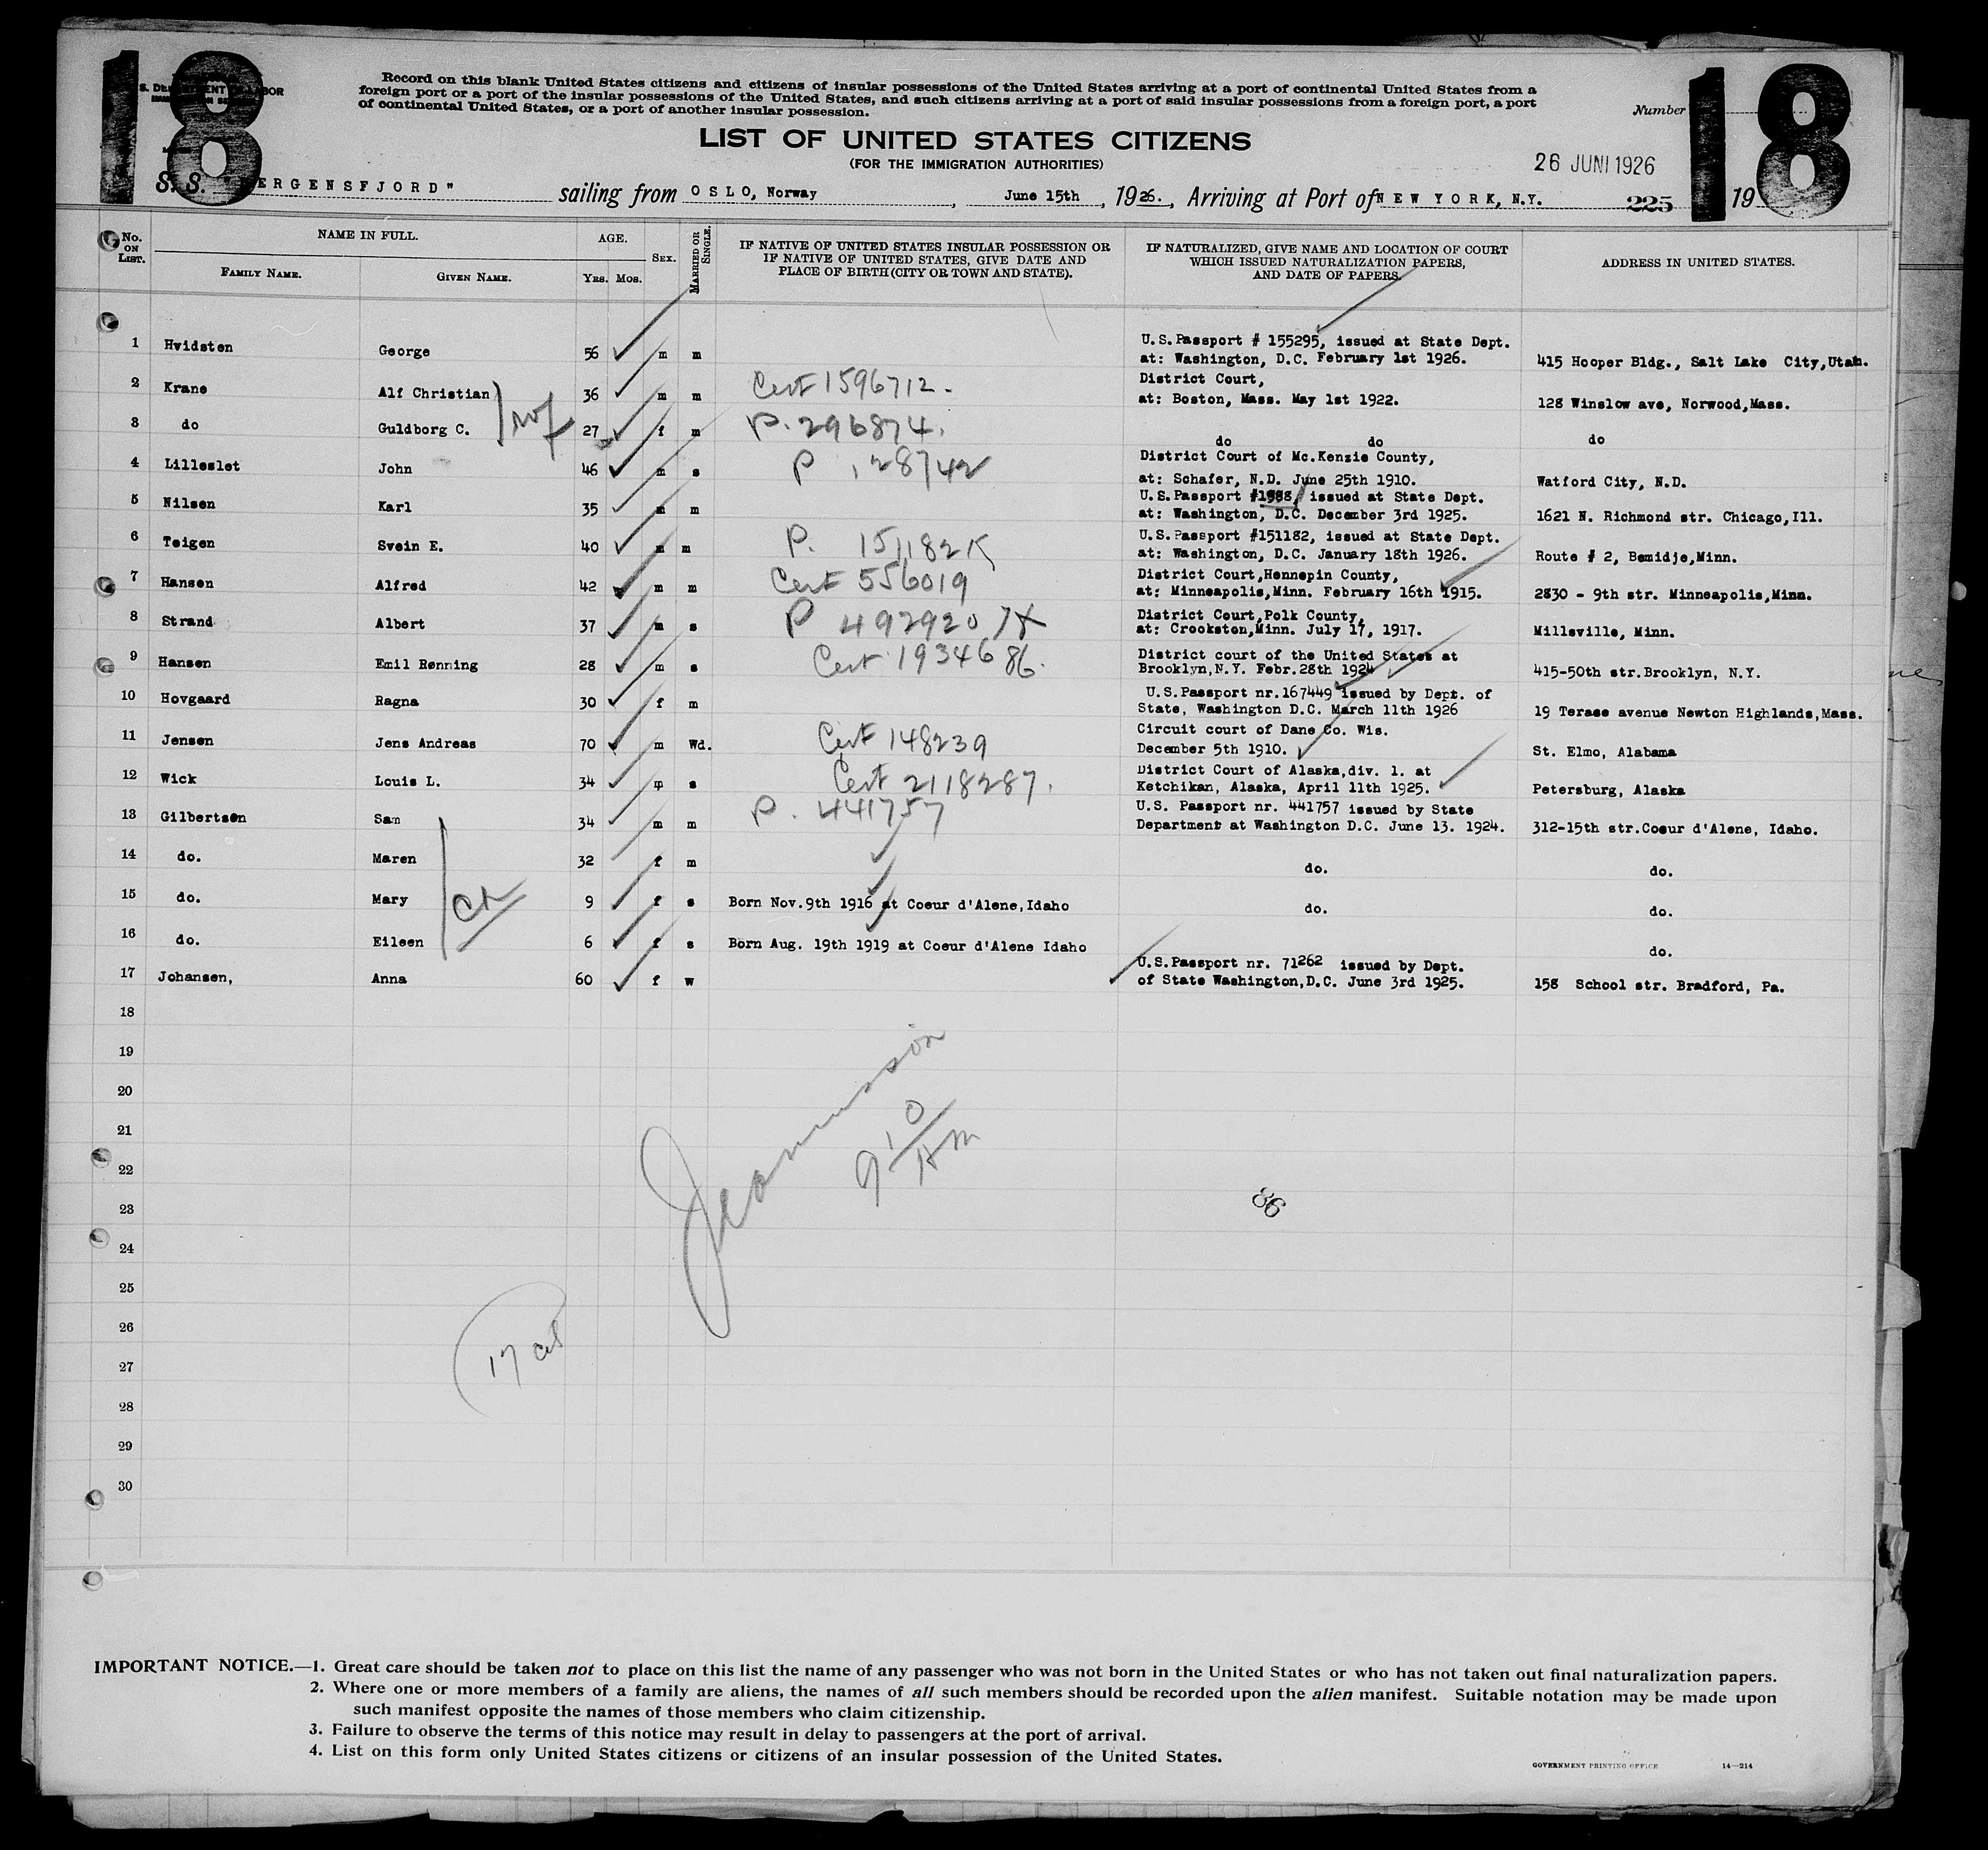 18
18
Record on this blank United States citizens and citizens of insular possessions of the United States arriving at a port of continental United States from a
foreign port or a port of the insular possessions of the United States, and such citizens arriving at a port of said insular possessions from a foreign port, a port
of continental United States, or a port of another insular possession.
Number
LIST OF UNITED STATES CITIZENS
(FOR THE IMMIGRATION AUTHORITIES)
26 JUNI 1926
S. S. "BERGENSFJORD" sailing from OSLO, Norway, June 15th, 1926., Arriving at Port of NEW YORK, N.Y. 225 19
No. ON LIST.
NAME IN FULL.
FAMILY NAME. GIVEN NAME.
AGE.
YRS. MOS.
SEX.
MARRIED OR SINGLE.
IF NATIVE OF UNITED STATES INSULAR POSSESSION OR
IF NATIVE OF UNITED STATES, GIVE DATE AND
PLACE OF BIRTH (CITY OR TOWN AND STATE).
IF NATURALIZED, GIVE NAME AND LOCATION OF COURT
WHICH ISSUED NATURALIZATION PAPERS,
AND DATE OF PAPERS.
ADDRESS IN UNITED STATES.
1 Hvidsten George 56 m m U.S.Passport # 155295, issued at State Dept.
at: Washington, D.C. February 1st 1926. 415 Hooper Bldg., Salt Lake City,Utah.
2 Krane Alf Christian 36 m m Cert 1596712. District Court,
at: Boston, Mass. May 1st 1922. 128 Winslow ave, Norwood,Mass.
3 do Guldborg C. 27 f m P. 296874. do do do
4 Lilleslet John 46 m s P 128742 District Court of Mc.Kenzie County,
at: Schafer, N.D. June 25th 1910. Watford City, N.D.
5 Nilsen Karl 35 m m U.S.Passport #1988, issued at State Dept.
at: Washington, D.C. December 3rd 1925. 1621 N. Richmond str. Chicago,Ill.
6 Teigen Svein E. 40 m m P. 151182 U.S.Passport #151182, issued at State Dept.
at: Washington, D.C. January 18th 1926. Route # 2, Bemidje,Minn.
7 Hansen Alfred 42 m m Cert 556019 District Court,Hennepin County,
at: Minneapolis,Minn. February 16th 1915. 2830 - 9th str. Minneapolis,Minn.
8 Strand Albert 37 m s P 492920 District Court,Polk County,
at: Crookston,Minn. July 17, 1917. Millsville, Minn.
9 Hansen Emil Rønning 28 m s Cert 1934686. District court of the United States at
Brooklyn,N.Y. Febr.28th 1924 415-50th str.Brooklyn, N.Y.
10 Hovgaard Ragna 30 f m U.S.Passport nr.167449 issued by Dept. of
State, Washington D.C. March 11th 1926 19 Terase avenue Newton Highlands,Mass.
11 Jensen Jens Andreas 70 m Wd. Cert 148239 Circuit court of Dane Co. Wis.
December 5th 1910. St. Elmo, Alabama
12 Wick Louis L. 34 m s Cert 2118287. District Court of Alaska,div. 1. at
Ketchikan, Alaska, April 11th 1925. Petersburg, Alaska
13 Gilbertsen Sam 34 m m P. 441757 U.S. Passport nr. 441757 issued by State
Department at Washington D.C. June 13. 1924. 312-15th str.Coeur d'Alene, Idaho.
14 do. Maren 32 f m do. do.
15 do. Mary 9 f s Born Nov.9th 1916 at Coeur d'Alene,Idaho do. do.
16 do. Eileen 6 f s Born Aug. 19th 1919 at Coeur d'Alene Idaho do.
17 Johansen, Anna 60 f w U.S.Passport nr. 71262 issued by Dept.
of State Washington,D.C. June 3rd 1925. 158 School str. Bradford, Pa.
18
19
20
21
22
23
24
25
26
27
28
29
30
9 10 AM
36
IMPORTANT NOTICE.—1. Great care should be taken not to place on this list the name of any passenger who was not born in the United States or who has not taken out final naturalization papers.
2. Where one or more members of a family are aliens, the names of all such members should be recorded upon the alien manifest. Suitable notation may be made upon
such manifest opposite the names of those members who claim citizenship.
3. Failure to observe the terms of this notice may result in delay to passengers at the port of arrival.
4. List on this form only United States citizens or citizens of an insular possession of the United States.
GOVERNMENT PRINTING OFFICE 14—214